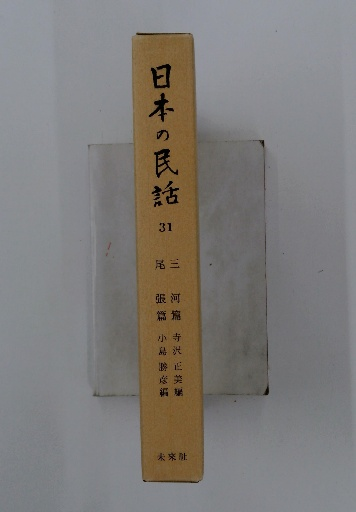 日本の民話
31
三河篇 寺沢正美編
尾張篇 小島勝彦編
未来社